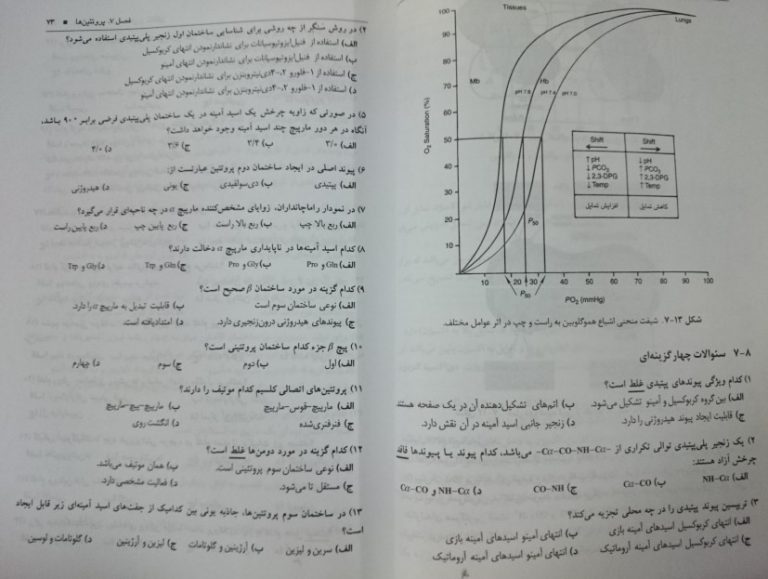 Tissues
Lungs
Mb
Hb
pH 7.6
pH 7.4
pH 7.0
O₂ Saturation (%)
100
90
80
70
60
50
40
30
20
10
P50
Shift
Shift
↑pH
↓PCO₂
↓2,3-DPG
↓Temp
↓pH
↑PCO₂
↑2,3-DPG
↑Temp
افزایش تمایل
کاهش تمایل
10 20 30 40 50 60 70 80 90 100
P50
PO₂ (mmHg)
شکل ۱۳-۷. شیفت منحنی اشباع هموگلوبین به راست و چپ در اثر عوامل مختلف.
۷-۸ سئوالات چهارگزینه‌ای
۱) کدام ویژگی پیوندهای پپتیدی غلط است؟
الف) بین گروه کربوکسیل و آمینو تشکیل می‌شود. ب) اتم‌های تشکیل‌دهنده آن در یک صفحه هستند
ج) قابلیت ایجاد پیوند هیدروژنی را دارد. د) زنجیر جانبی اسید آمینه در آن نقش دارد.
۲) یک زنجیر پلی‌پپتیدی توالی تکراری از –Cα–CO–NH–Cα– می‌باشد، کدام پیوند یا پیوندها فاقد
چرخش آزاد هستند:
الف) NH–Cα ب) Cα–CO ج) CO–NH د) NH–Cα و Cα–CO
۳) تریپسین پیوند پپتیدی را در چه محلی تجزیه می‌کند؟
الف) انتهای کربوکسیل اسیدهای آمینه بازی ب) انتهای آمینو اسیدهای آمینه بازی
ج) انتهای کربوکسیل اسیدهای آمینه آروماتیک د) انتهای آمینو اسیدهای آمینه آروماتیک
فصل ۷. پروتئین‌ها ■ ۷۳
۴) در روش سنگر از چه روشی برای شناسایی ساختمان اول زنجیر پلی‌پپتیدی استفاده می‌شود؟
الف) استفاده از فنیل‌ایزوتیوسیانات برای نشاندارنمودن انتهای کربوکسیل
ب) استفاده از فنیل‌ایزوتیوسیانات برای نشاندارنمودن انتهای آمینو
ج) استفاده از ۱-فلورو ۲،۴-دی‌نیتروبنزن برای نشاندارنمودن انتهای کربوکسیل
د) استفاده از ۱-فلورو ۲،۴-دی‌نیتروبنزن برای نشاندارنمودن انتهای آمینو
۵) در صورتی که زاویه چرخش یک اسید آمینه در یک ساختمان پلی‌پپتیدی فرضی برابر ۹۰۰ باشد،
آنگاه در هر دور مارپیچ چند اسید آمینه وجود خواهد داشت؟
الف) ۳/۰ ب) ۳/۳ ج) ۳/۶ د) ۴/۰
۶) پیوند اصلی در ایجاد ساختمان دوم پروتئین عبارتست از:
الف) پپتیدی ب) دی‌سولفیدی ج) یونی د) هیدروژنی
۷) در نمودار راماچانداران، زوایای مشخص‌کننده مارپیچ α در چه ناحیه‌ای قرار می‌گیرد؟
الف) ربع بالا چپ ب) ربع بالا راست ج) ربع پایین چپ د) ربع پایین راست
۸) کدام اسید آمینه‌ها در ناپایداری مارپیچ α دخالت دارند؟
الف) Gln و Pro ب) Gly و Pro ج) Gln و Trp د) Gly و Trp
۹) کدام گزینه در مورد ساختمان β صحیح است؟
الف) نوعی ساختمان سوم است ب) قابلیت تبدیل به مارپیچ α را دارد.
ج) پیوندهای هیدروژنی درون‌زنجیری دارد. د) امتدادیافته است.
۱۰) پیچ β جزء کدام ساختمان پروتئینی است؟
الف) اول ب) دوم ج) سوم د) چهارم
۱۱) پروتئین‌های اتصالی کلسیم کدام موتیف را دارند؟
الف) مارپیچ-قوس-مارپیچ ب) مارپیچ-پیچ-مارپیچ
ج) فنرفنری‌شده د) انگشت روی
۱۲) کدام گزینه در مورد دومن‌ها غلط است؟
الف) نوعی ساختمان سوم پروتئینی است. ب) همان موتیف می‌باشد.
ج) مستقل تا می‌شود. د) فعالیت مشخصی دارد.
۱۳) در ساختمان سوم پروتئین‌ها، جاذبه یونی بین کدامیک از جفت‌های اسید آمینه‌ای زیر قابل ایجاد
است؟
الف) سرین و لیزین ب) آرژینین و گلوتامات ج) لیزین و آرژینین د) گلوتامات و لوسین